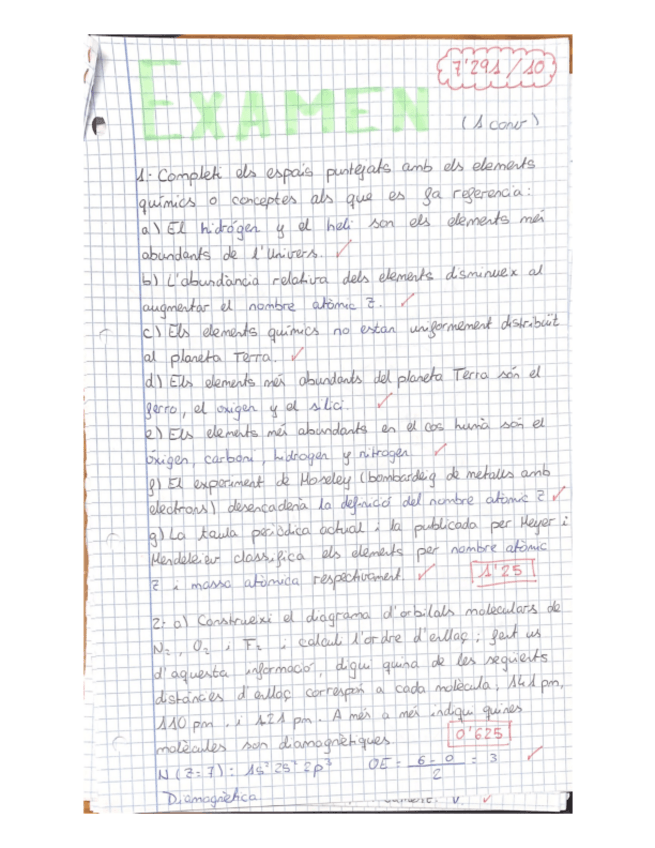 7'291/10
EXAMEN
(1 conv)
1. Completi els espais puntejats amb els elements
químics o conceptes als que es fa referencia:
a) El hidrógen y el heli son els elements més
abundants de l'Univers.
b) L'abundància relativa dels elements disminueix al
augmentar el nombre atòmic Z.
c) Els elements químics no estan uniformement distribuït
al planeta Terra.
d) Els elements més abundants del planeta Terra són el
ferro, el oxigen y el silici.
e) Els elements més abundants en el cos humà són el
òxigen, carboni, hidrogen y nitrogen
f) El experiment de Moseley (bombardeig de metalls amb
electrons) desencadena la definició del nombre atòmic Z
g) La taula periòdica actual i la publicada per Meyer i
Mendeleiev classifica els elements per nombre atòmic
Z i massa atòmica respectivament
1'25
2. a) Construeixi el diagrama d'orbitals moleculars de
N₂, O₂ i F₂ i calculi l'ordre d'enllaç; fent us
d'aquesta informació, digui quina de les següents
distàncies d'enllaç correspon a cada molècula, 141 pm,
110 pm i 121 pm. A més a més indiqui quines
molècules son diamagnètiques
0'625
N (Z=7): 1s² 2s² 2p³ OE = 6-0/2 = 3
Diamagnètica